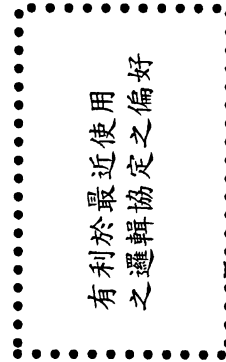 有利於最近使用
之邏輯協定之偏好